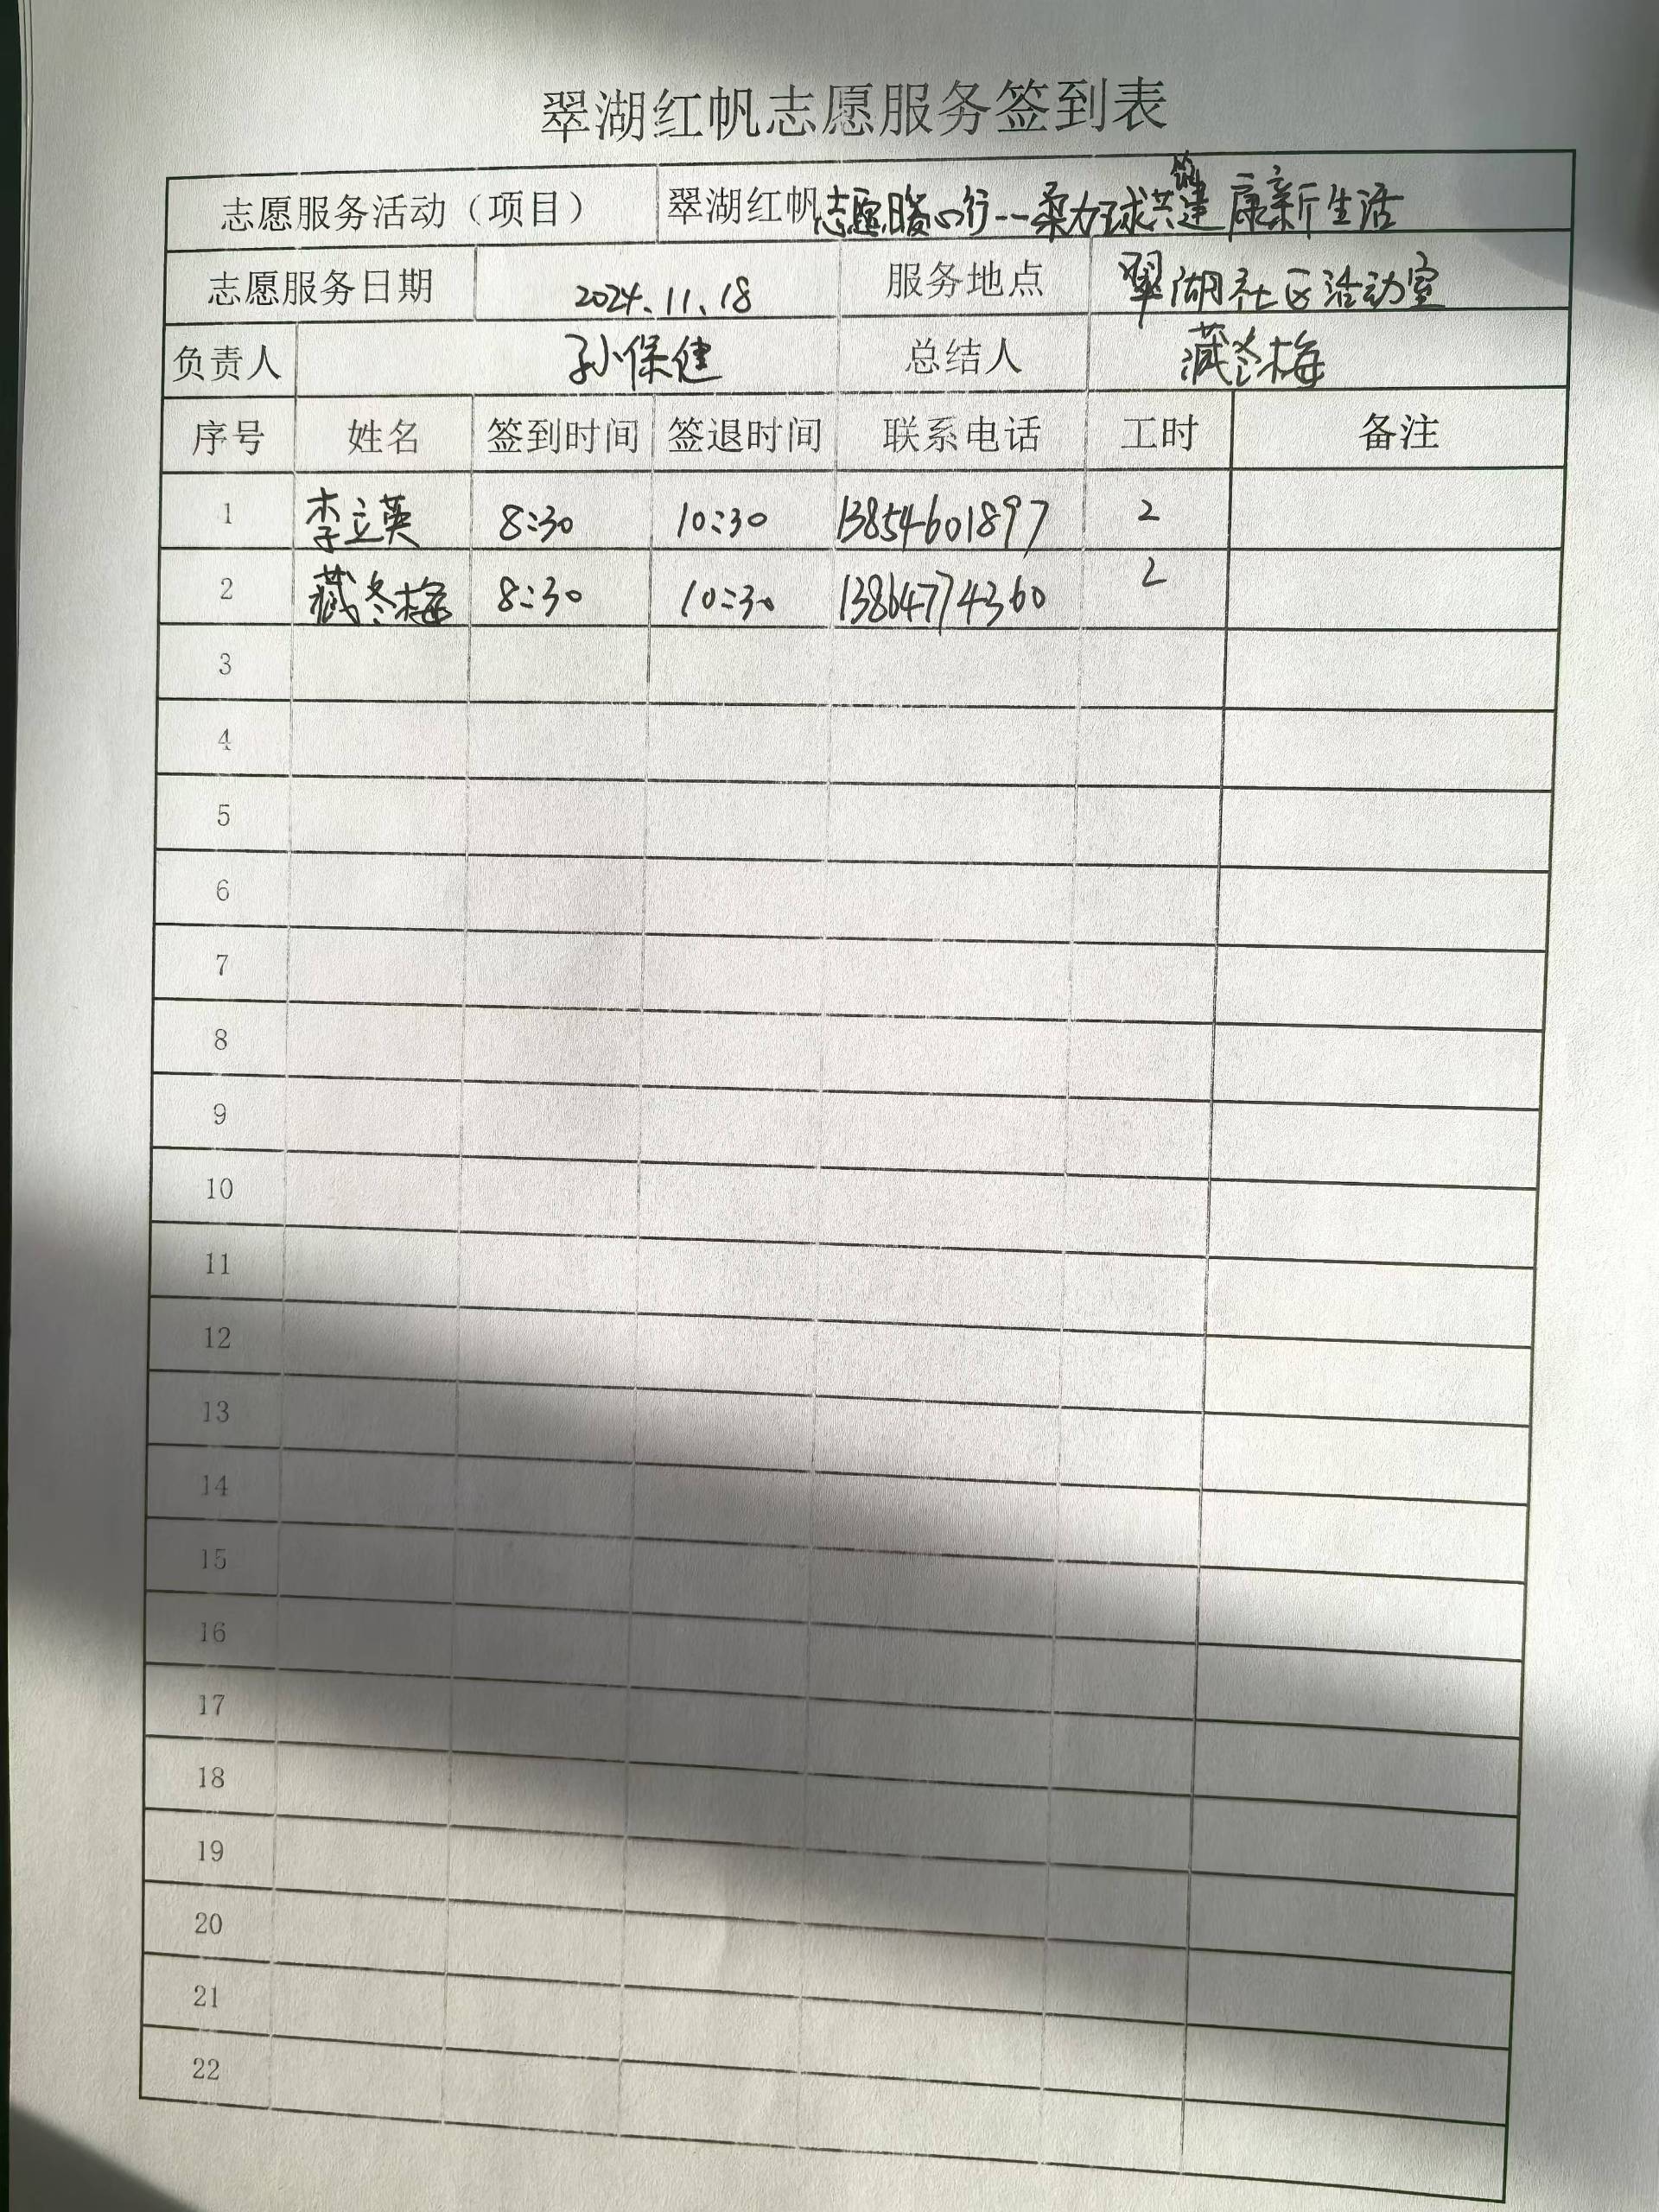 翠湖红帆志愿服务签到表
志愿服务活动（项目） 翠湖红帆志愿暖心行--柔力球共筑健康新生活
志愿服务日期 2024.11.18 服务地点 翠湖社区活动室
负责人 孙保健 总结人 臧冬梅
序号 姓名 签到时间 签退时间 联系电话 工时 备注
1 李立英 8:30 10:30 13854601897 2
2 臧冬梅 8:30 10:30 13864774360 2
3
4
5
6
7
8
9
10
11
12
13
14
15
16
17
18
19
20
21
22